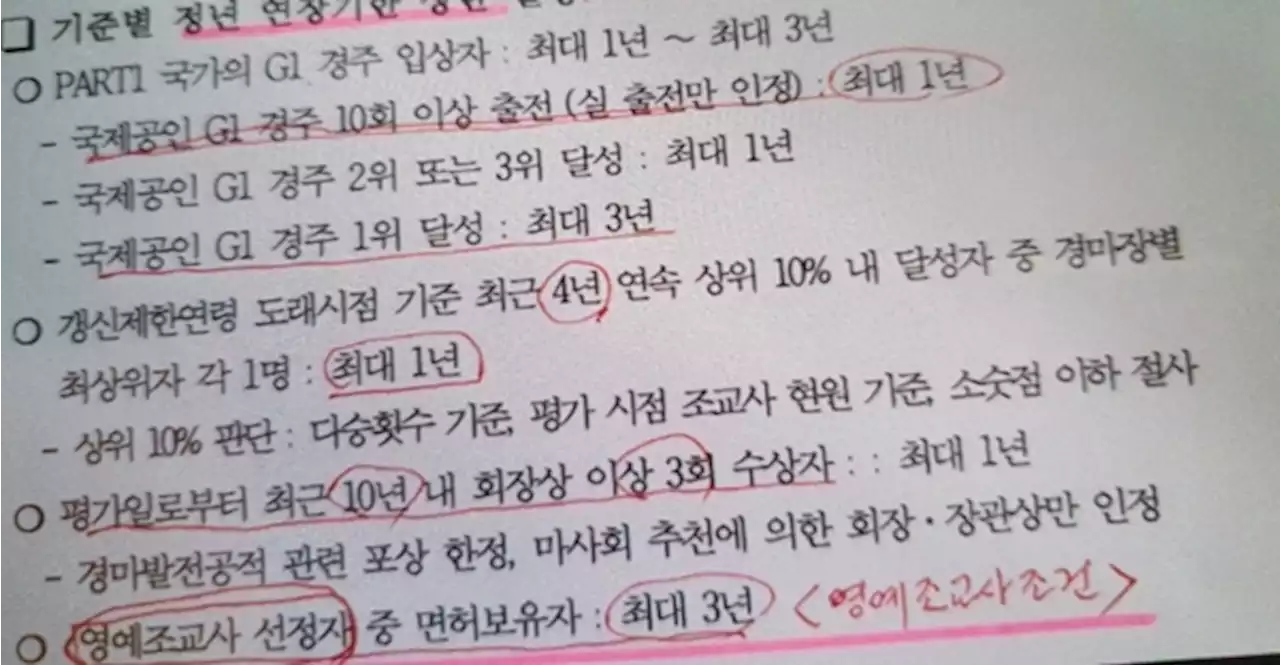 □ 기준별 정년 연장기한
○ PART1 국가의 G1 경주 입상자 : 최대 1년 ~ 최대 3년
- 국제공인 G1 경주 10회 이상 출전 (실 출전만 인정) : 최대 1년
- 국제공인 G1 경주 2위 또는 3위 달성 : 최대 1년
- 국제공인 G1 경주 1위 달성 : 최대 3년
○ 갱신제한연령 도래시점 기준 최근 4년 연속 상위 10% 내 달성자 중 경마장별
최상위자 각 1명 : 최대 1년
- 상위 10% 판단 : 다승횟수 기준, 평가 시점 조교사 현원 기준, 소숫점 이하 절사
○ 평가일로부터 최근 10년 내 회장상 이상 3회 수상자 : : 최대 1년
- 경마발전공적 관련 포상 한정, 마사회 추천에 의한 회장·장관상만 인정
○ 영예조교사 선정자 중 면허보유자 : 최대 3년 <영예조교사조건>